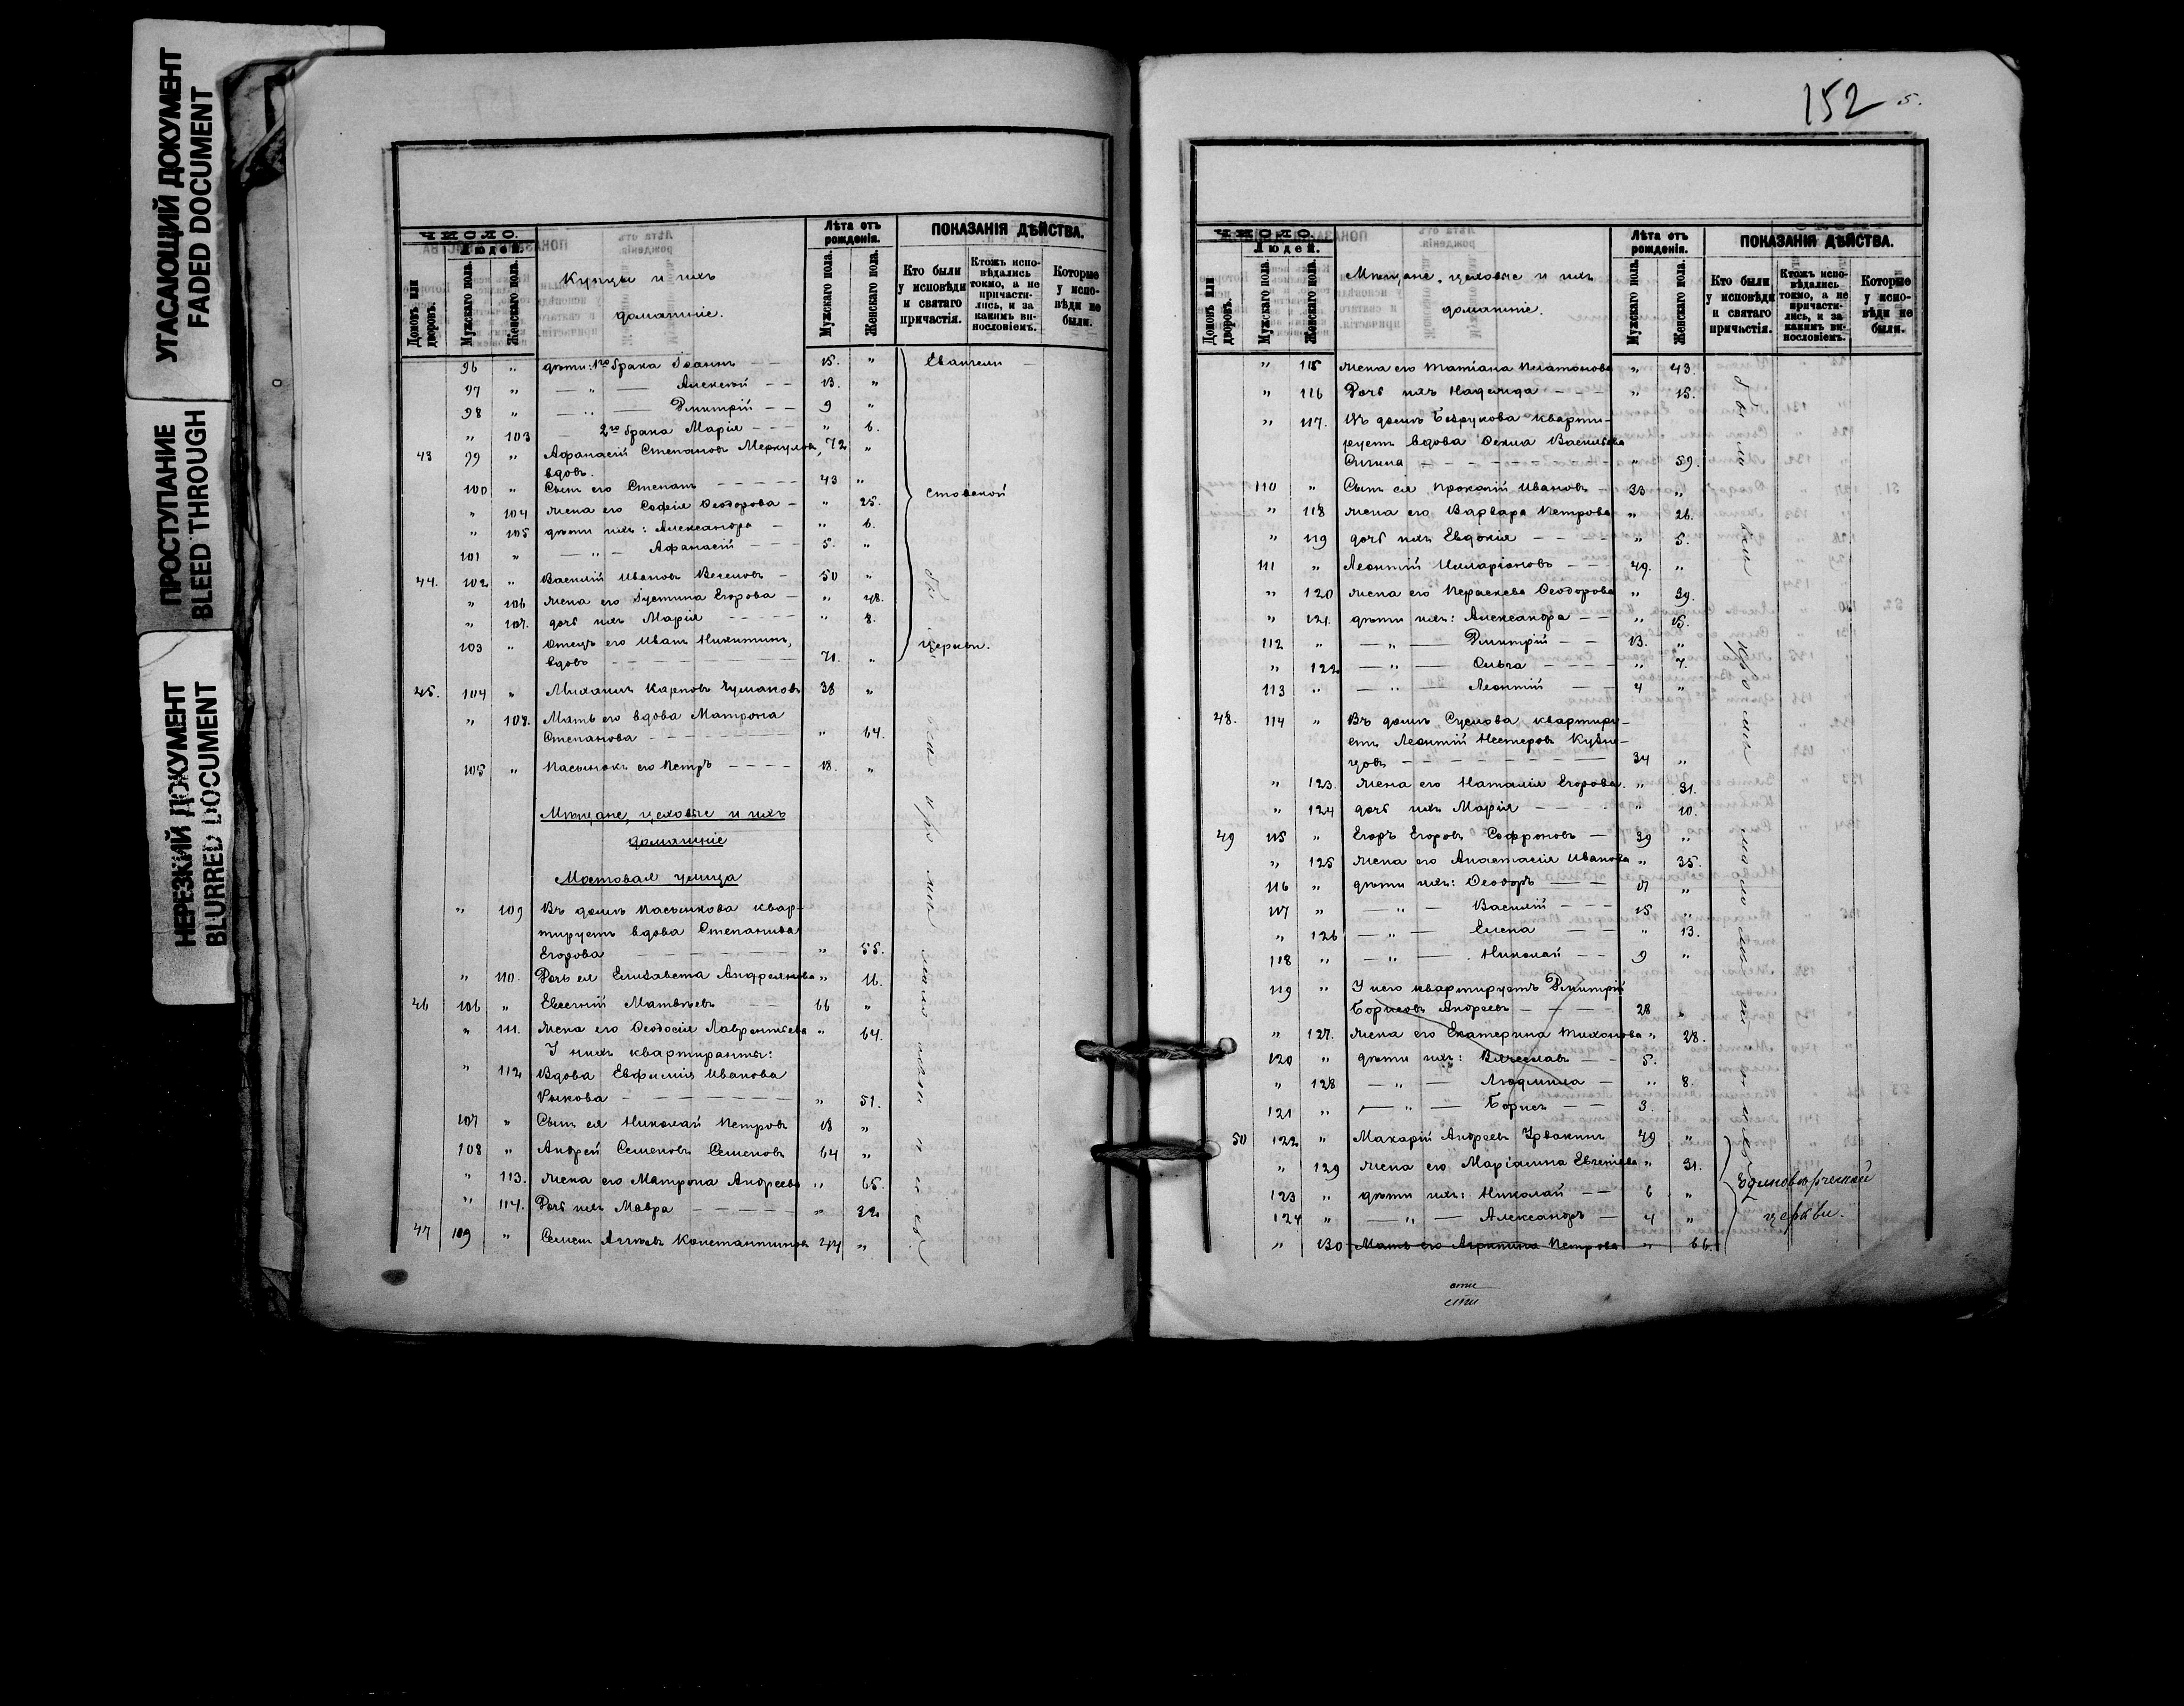 УГАСАЮЩИЙ ДОКУМЕНТ
FADED DOCUMENT
ПРОСТУПАНИЕ
BLEED THROUGH
НЕРЕЗКИЙ ДОКУМЕНТ
BLURRED DOCUMENT
ЧИСЛО.
Людей.
Домовъ или дворовъ.
Мужскаго пола.
Женскаго пола.
Купцы и ихъ
домашніе.
Лѣта отъ рожденія.
Мужскаго пола.
Женскаго пола.
ПОКАЗАНІЯ ДѢЙСТВА.
Кто были у исповѣди и святаго причастія.
Ктожъ исповѣдались токмо, а не причастились, и за какимъ винословіемъ.
Которые у исповѣди не были.
96 " дѣти: 1го брака Іоаннъ — — 15. "
97 " — " — Алексѣй — — 13. "
98 " — " — Дмитрій — — 9 "
" 103 2го брака Марія — — — " 6.
43 99 " Афанасій Степановъ Меркуловъ, 72 "
вдовъ.
100 " Сынъ его Степанъ — — — — — 43 "
" 104 жена его Софія Ѳеодорова — " 25.
" 105 дѣти ихъ: Александра — " 6.
101 " — " — Афанасій — — — 5. "
44. 102 " Василій Ивановъ — 50 "
" 106 жена его Іустина Егорова — " 48.
" 107. дочь ихъ Марія — — — — " 8.
103 " Отецъ его Иванъ Никитинъ,
вдовъ — — — — — — — 71. "
45. 104 " Михаилъ Карповъ Чумаковъ 38 "
" 108. Мать его вдова Матрона
Степанова — — — — — — " 64.
105 " Пасынокъ его Петръ — — — — 18. "
Евангели —
стовской
церкви.
Мѣщане, цеховые и ихъ
домашніе
Мостовая улица
" 109 Въ домѣ Пасынкова квар-
тируетъ вдова Степанида
Егорова — — — — — — " 55.
" 110. Дочь ея Елизавета Андреянова " 16.
46 106 " Евсегній Матвѣевъ — — 66 "
" 111. жена его Ѳеодосія Лаврентьева " 64.
У нихъ квартиранты:
" 112 Вдова Евфимія Иванова
Рыкова — — — — — — — " 51.
107 " Сынъ ея Николай Петровъ 18 "
108 " Андрей Семеновъ Семеновъ 64 "
" 113. жена его Матрона Андреева " 65.
" 114. Дочь ихъ Мавра — — — — — " 32
47 109 " Семенъ Константиновъ 44 "
152 5.
ЧИСЛО.
Людей.
Домовъ или дворовъ.
Мужскаго пола.
Женскаго пола.
Мѣщане, цеховые и ихъ
домашніе.
Лѣта отъ рожденія.
Мужскаго пола.
Женскаго пола.
ПОКАЗАНІЯ ДѢЙСТВА.
Кто были у исповѣди и святаго причастія.
Ктожъ исповѣдались токмо, а не причастились, и за какимъ винословіемъ.
Которые у исповѣди не были.
" 115 жена его Татіана Платонова " 43.
" 116 Дочь ихъ Надежда — — — " 15.
" 117. Въ домѣ Безрукова кварти-
руетъ вдова Ѳекла Васильева
— — — — — — — — " 59.
110 " Сынъ ея Прокопій Ивановъ — 33 "
" 118 жена его Варвара Петрова " 26.
" 119 дочь ихъ Евдокія — — — — " 5.
111 " Леонтій Илларіоновъ — — — 49. "
" 120 жена его Параскева Ѳеодорова " 39.
" 121. дѣти ихъ: Александра — — " 15.
112 " — " — Дмитрій — — 13. "
" 122 — " — Ольга — — — — " 7.
113 " — " — Леонтій — — 4 "
48. 114 " Въ домѣ Суслова квартиру-
етъ Леонтій Нестеровъ Кузне-
цовъ — — — — — — — — — 34 "
" 123. жена его Наталія Егорова. " 31.
" 124 дочь ихъ Марія — — — — " 10.
49 115 " Егоръ Егоровъ Софроновъ — 39 "
" 125 жена его Анастасія Иванова " 35.
116 " дѣти ихъ: Ѳеодоръ — — — 17 "
117 " — " — Василій — — — 15 "
" 126 — " — Елена — — " 13.
118 " — " — Николай — — 9 "
119 " У него квартируетъ Дмитрій
Борисовъ Андреевъ — — — — 28 "
" 127. жена его Екатерина Тихонова " 28.
120 " дѣти ихъ: Вячеславъ — — 5.
" 128 — " — Людмила — " 8.
121 " — " — Борисъ — — 3.
50 122 " Макарій Андреевъ 49 "
" 129 жена его Маріамна Евгеніева " 31.
123 " дѣти ихъ: Николай — — 6 "
124 " — " — Александръ — 4 "
" 130 Мать его Агрипина Петрова " 66.
Единовѣрческой
церкви.